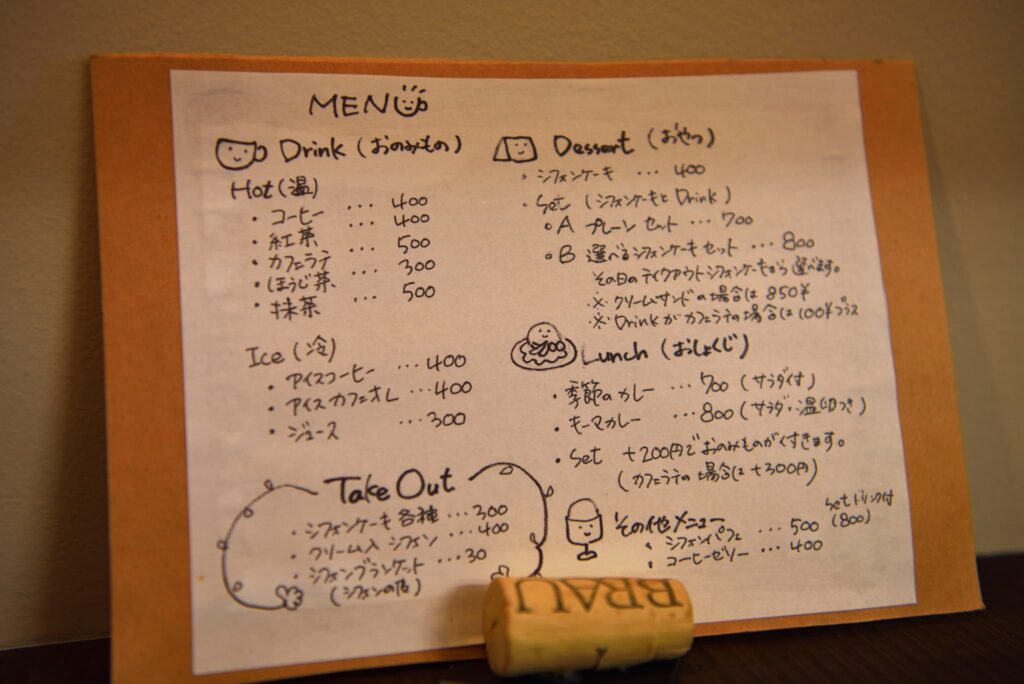 MENU
Drink (おのみもの)
Hot (温)
・コーヒー ... 400
・紅茶 ... 400
・カフェラテ ... 500
・ほうじ茶 ... 300
・抹茶 ... 500
Ice (冷)
・アイスコーヒー ... 400
・アイスカフェオレ ... 400
・ジュース ... 300
Take Out
・シフォンケーキ各種 ... 300
・クリーム入シフォン ... 400
・シフォンブランケット ... 30
(シフォンの店)
Dessert (おやつ)
・シフォンケーキ ... 400
・Set (シフォンケーキとDrink)
○A プレーンセット ... 700
○B 選べるシフォンケーキセット ... 800
その日のテイクアウトシフォンケーキから選べます。
※クリームサンドの場合は850¥
※Drinkがカフェラテの場合は100¥プラス
Lunch (おしょくじ)
・季節のカレー ... 700 (サラダ付)
・キーマカレー ... 800 (サラダ・温付つき)
・Set +200円でおのみものがつきます。
(カフェラテの場合は+300円)
その他メニュー
・シフォンパフェ ... 500 Setドリンク付 (800)
・コーヒーゼリー ... 400
BRAU